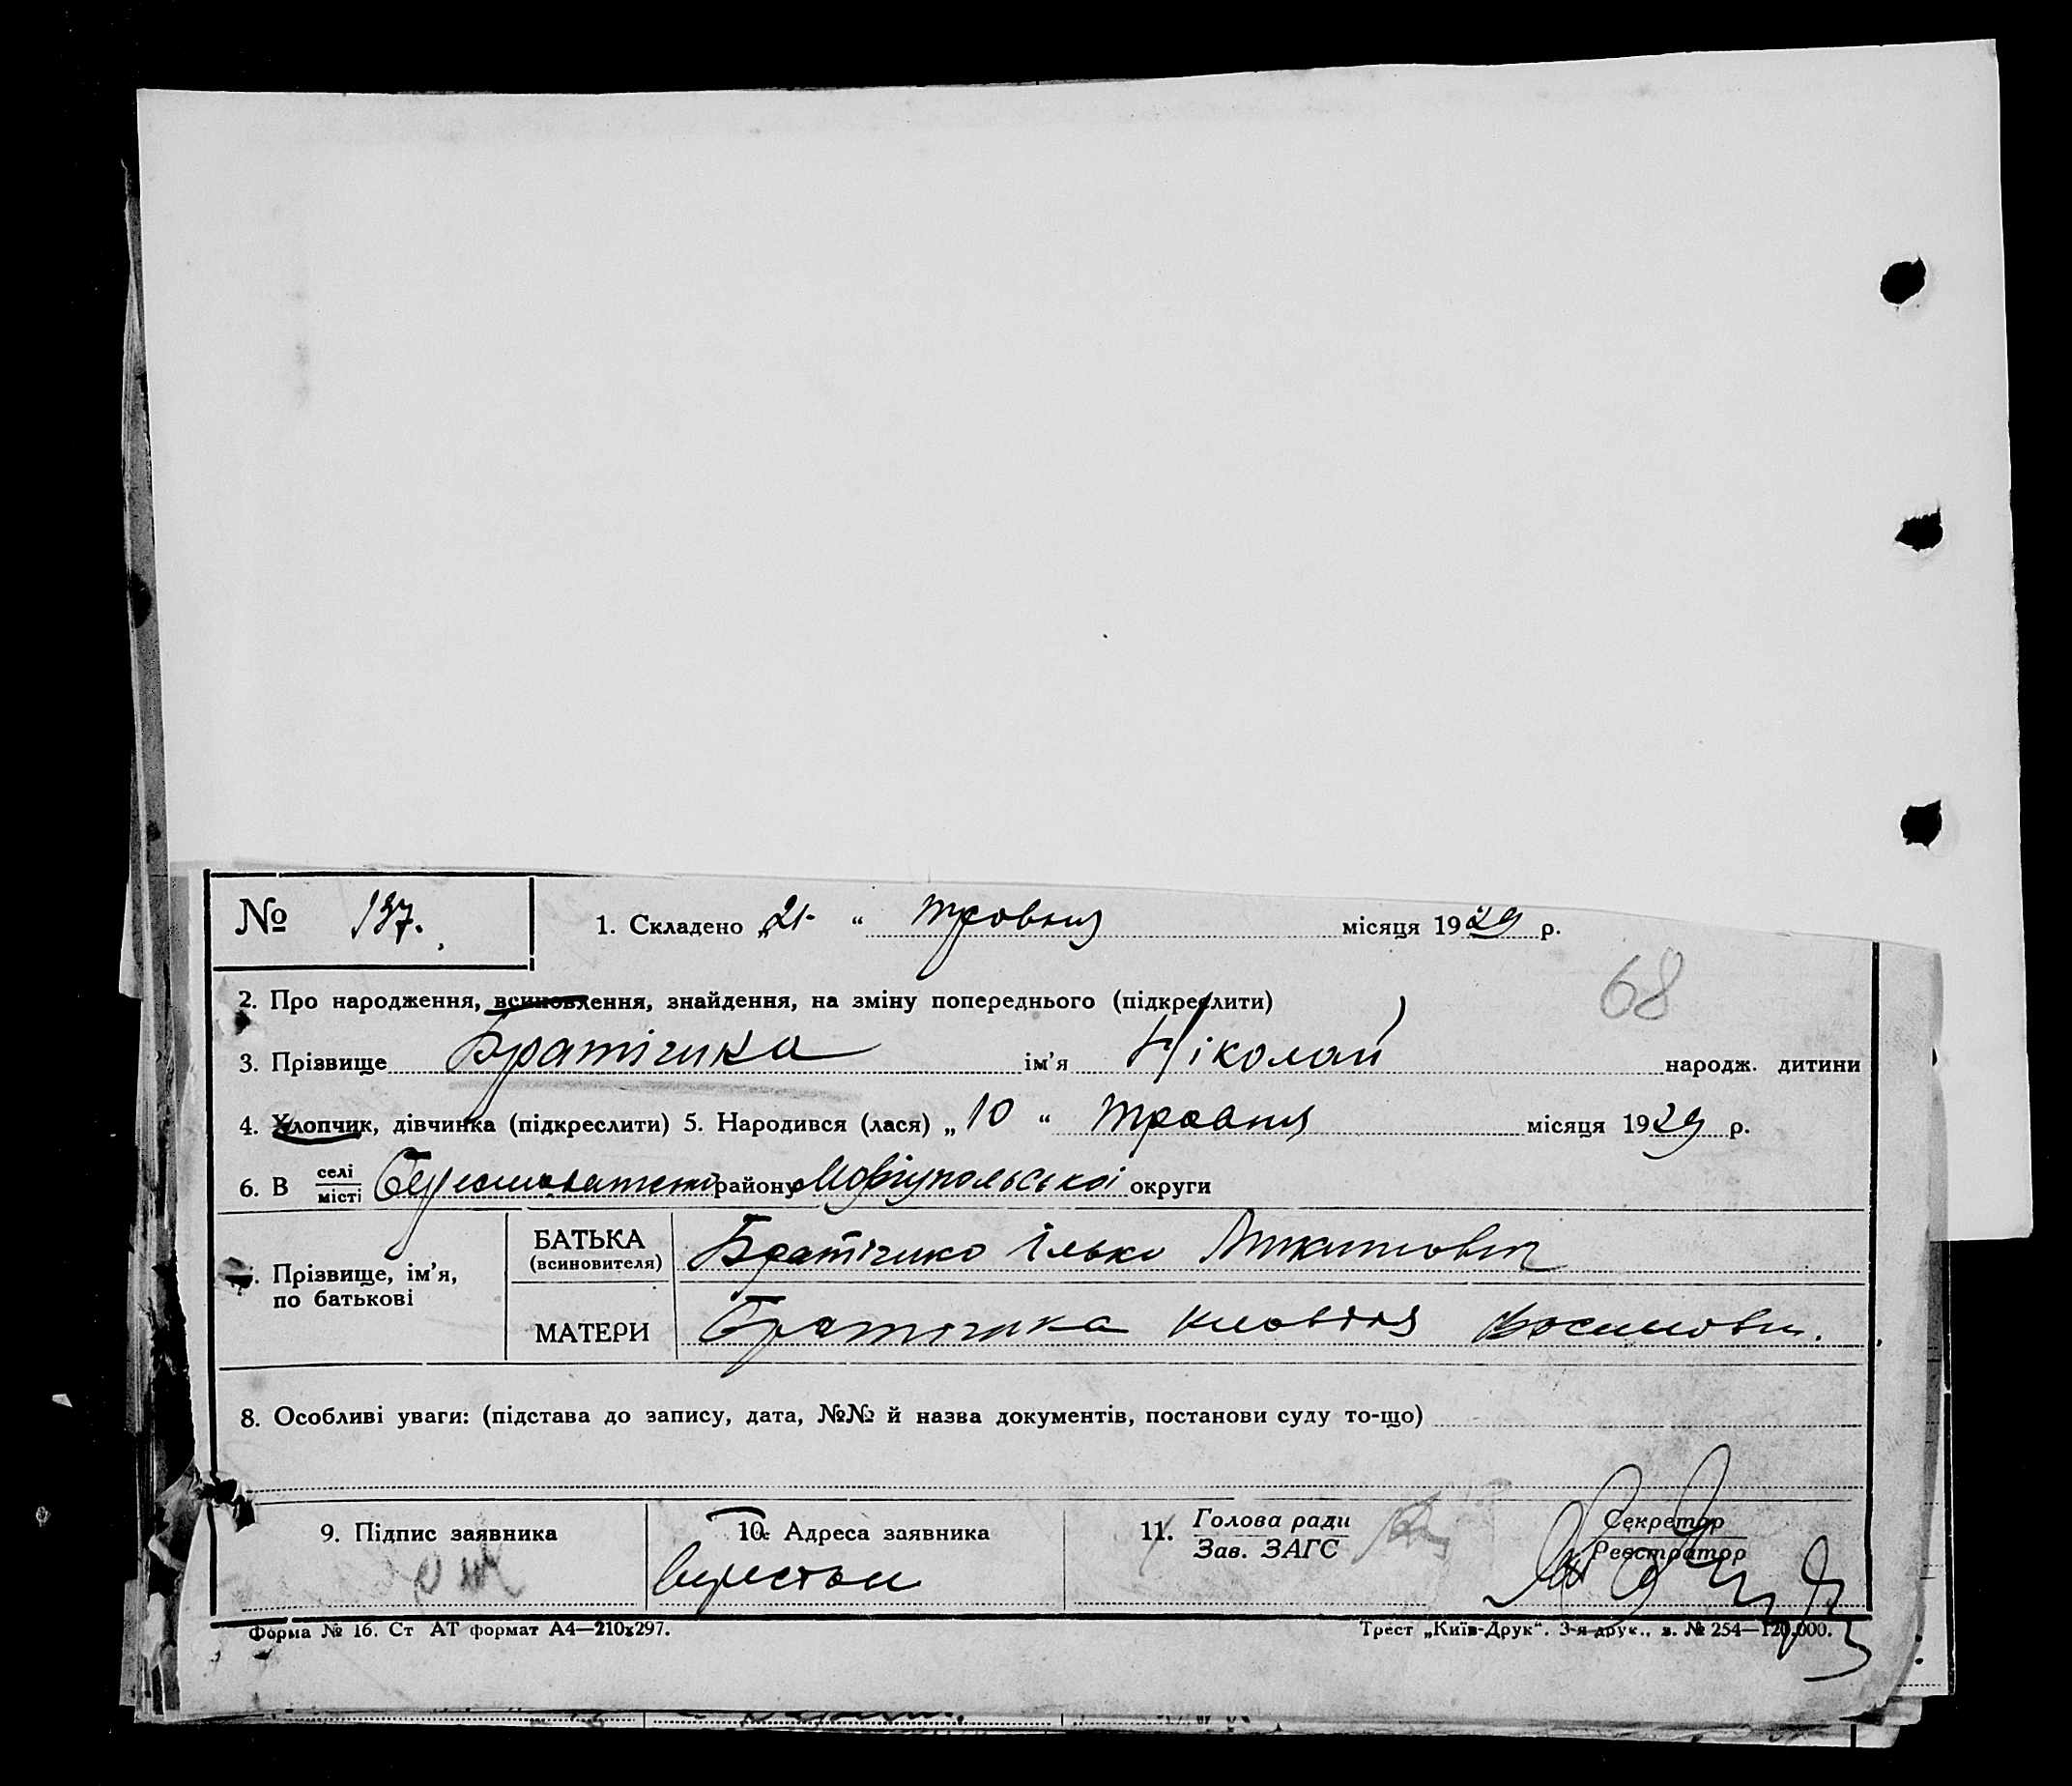 № 137.
1. Складено „21 “ травня місяця 1929 р.
68
2. Про народження, всиновлення, знайдення, на зміну попереднього (підкреслити)
3. Прізвище Братічика ім’я Ніколай народж. дитини
4. Хлопчик, дівчинка (підкреслити) 5. Народився (лася) „ 10 “ травня місяця 1929 р.
6. В селі місті району Маріупольської округи
Прізвище, ім’я, по батькові
БАТЬКА (всиновителя) Братічико Ілько Микитович
МАТЕРИ Братічика Клавдія
8. Особливі уваги: (підстава до запису, дата, №№ й назва документів, постанови суду то-що)
9. Підпис заявника
10. Адреса заявника
11. Голова ради Зав. ЗАГС
Секретар Реєстратор
Форма № 16. Ст АТ формат А4—210х297.
Трест „Київ-Друк“. 3-я друк., з. № 254—120.000.